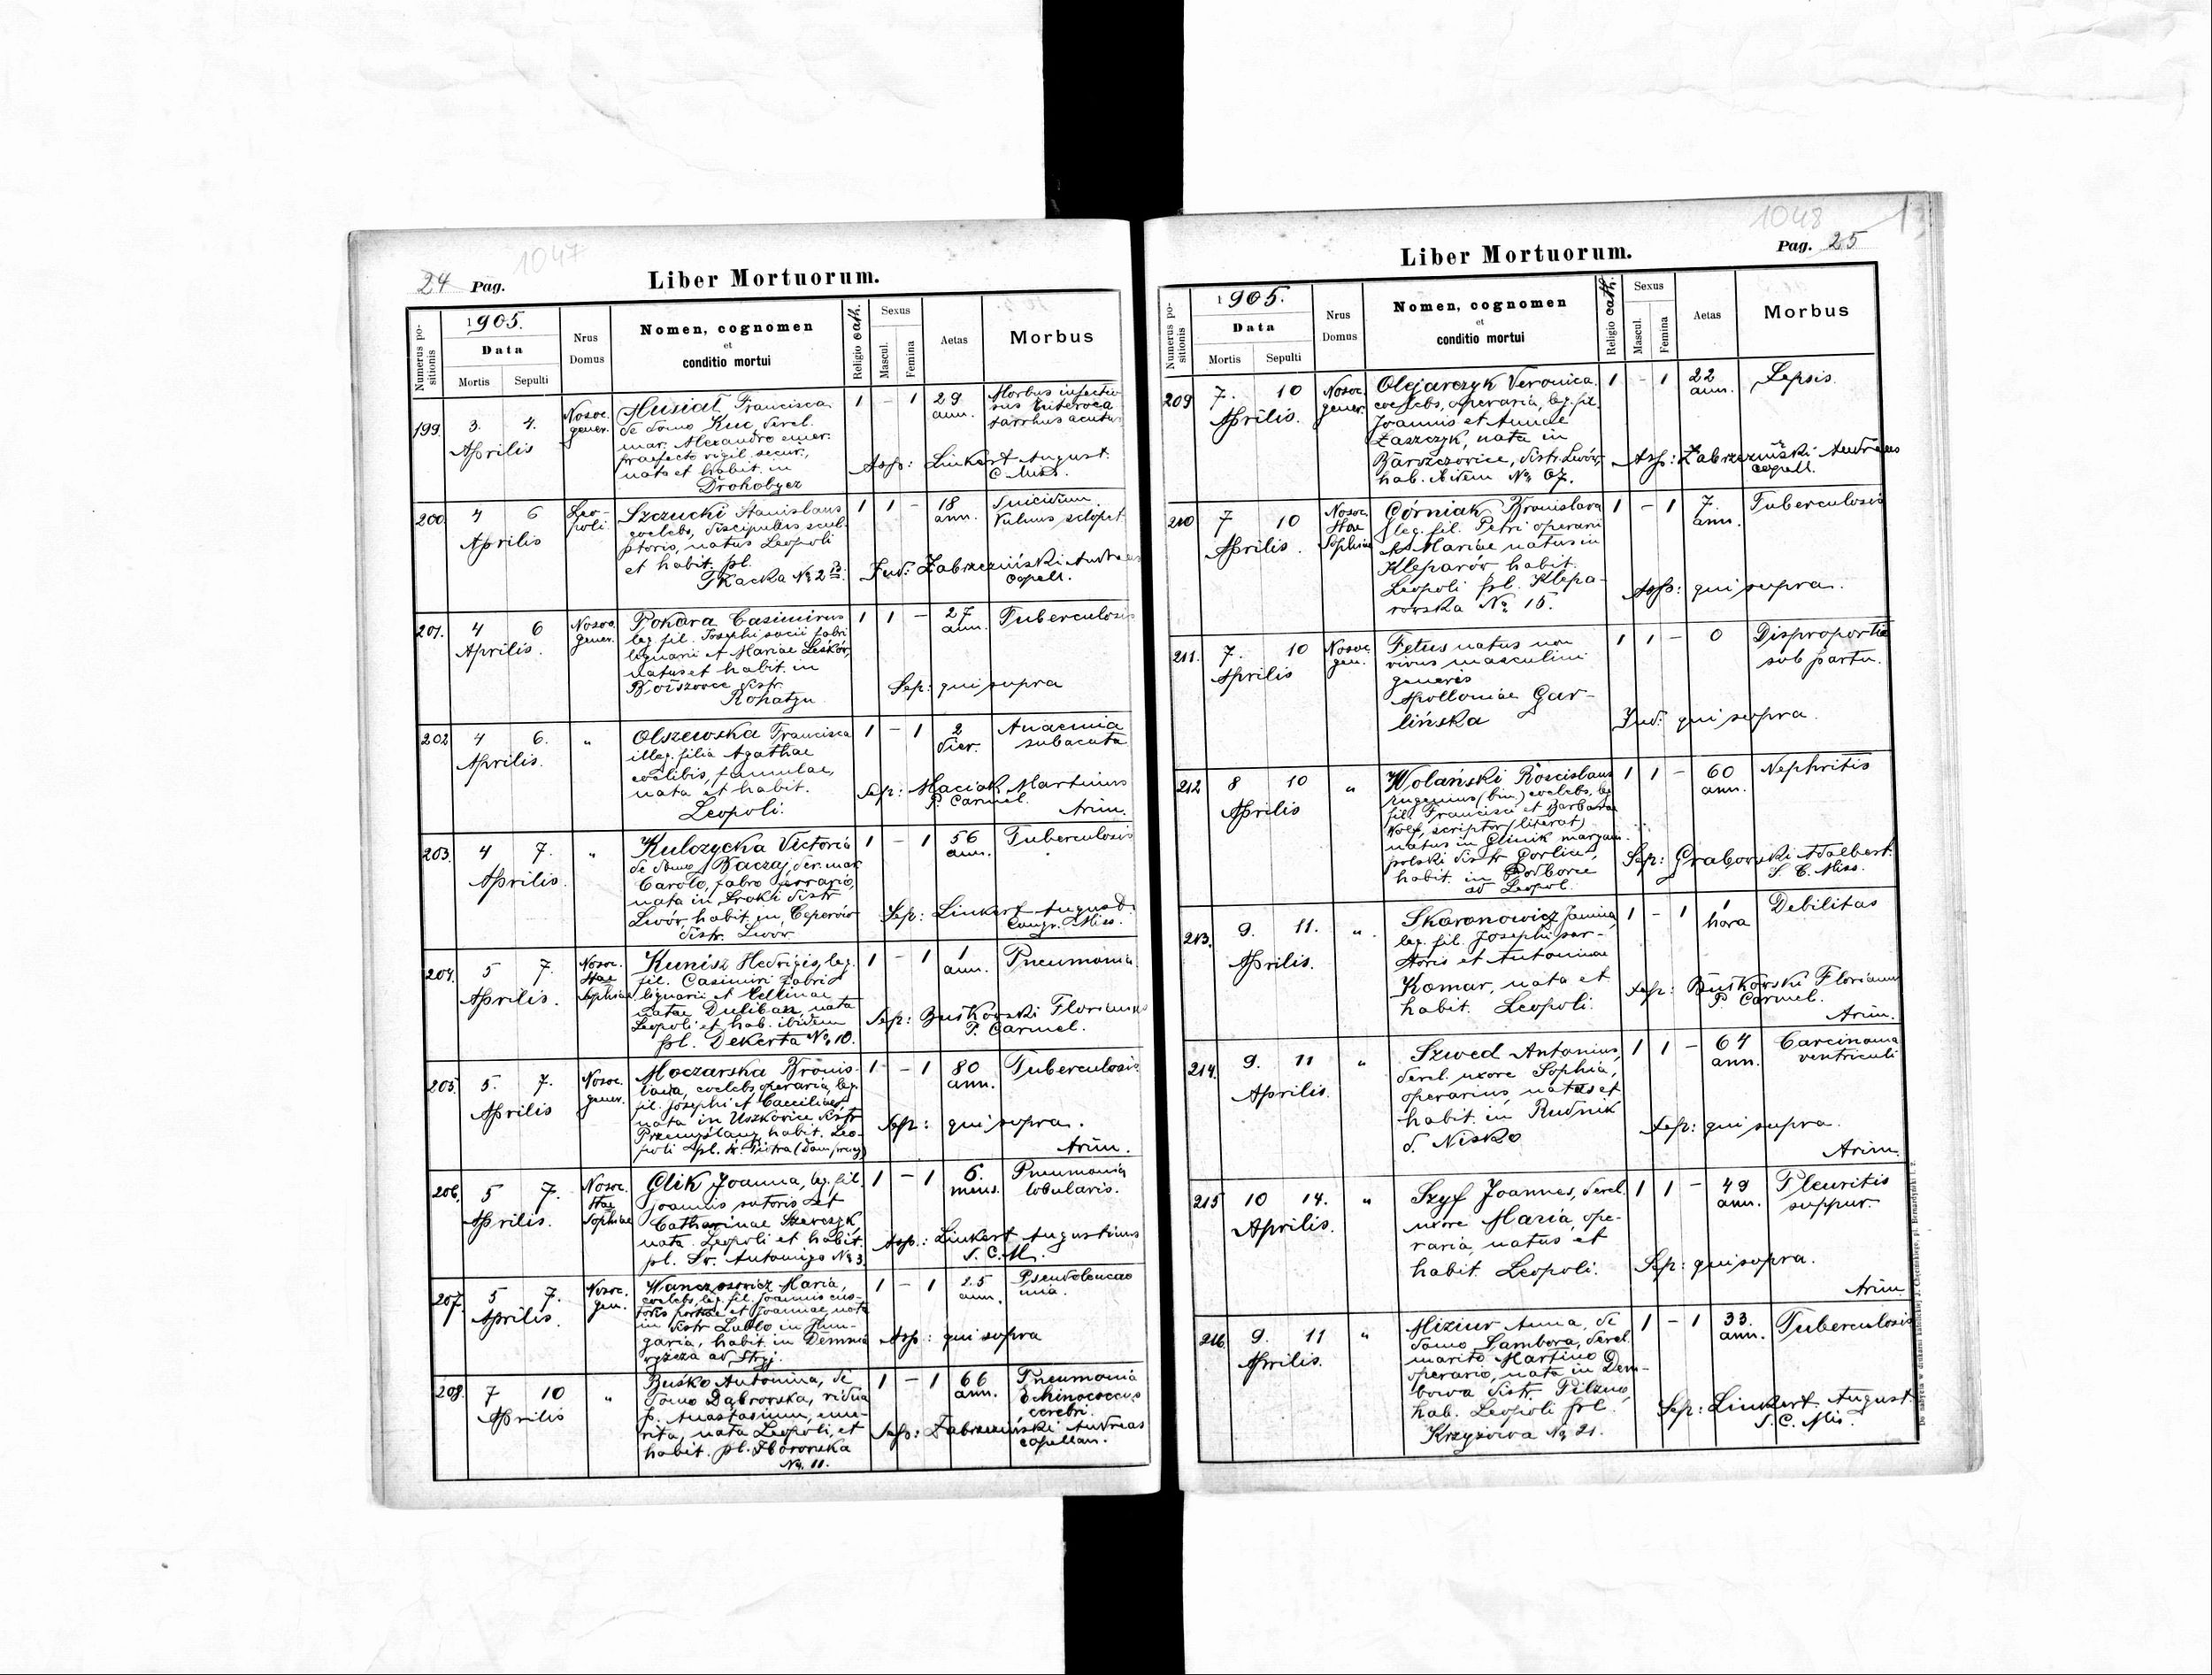 1047
24 Pag.
Liber Mortuorum.
Numerus positionis
1905.
Data
Mortis
Sepulti
Nrus Domus
Nomen, cognomen
et
conditio mortui
Religio cath.
Sexus
Mascul.
Femina
Aetas
Morbus
199. 3. 4. Aprilis
Nosoc. gener.
Musiał Francisca
de domo Kuc, derel.
mar. Alexandro emer.
praefecto vigil. secur.,
nata et habit. in
Drohobycz
1 - 1
29 ann.
Morbus infectio
sus Enteroca
tarrhus acutus
Asp: Linkert August.
C. Miss.
200. 4 6 Aprilis
Leo-
poli
Szczucki Stanislaus
coelebs, discipulus scul-
ptoris, natus Leopoli
et habit. pl.
Tkacka № 2 B.
1 1 -
18 ann.
Suicidium
Vulnus sclopet.
Ind: Zabrzeziński Andreas
capell.
201. 4 6 Aprilis.
Nosoc. gener.
Pokora Casimirus
leg. fil. Josephi socii fabri
lignarii et Mariae Leśków,
natus et habit. in
distr.
Rohatyn
1 1 -
27 ann.
Tuberculosis
Sep: qui supra
202 4 6. Aprilis.
"
Olszewska Francisca
illeg. filia Agathae
coelibis, famulae,
nata et habit.
Leopoli.
1 - 1
2 dier.
Anaemia
subacuta
Sep: Maciak Martinus
P. Carmel.
Arim.
203. 4 7. Aprilis.
"
Kulczycka Victoria
de domo Baczaj, der. mar.
Carolo, fabro ferrario,
nata in Sroki distr
Lwów, habit. in Ceperów
distr. Lwów
1 - 1
56 ann.
Tuberculosis
Sep: Linkert August
Congr. Miss.
204. 5 7. Aprilis.
Nosoc. Stae Sophiae
Kunisz Hedvigis, leg.
fil. Casimiri fabri
lignarii et
natae Duliban, nata
Leopoli et hab. ibidem
pl. Dekerta № 10.
1 - 1
1 ann.
Pneumonia
Sep: Buśkowski Florianus
P. Carmel.
205. 5. 7. Aprilis
Nosoc. gener.
Moczarska Bronis-
lava, coelebs operaria, leg.
fil. Josephi et Caeciliae
nata in Uszkowice distr
Przemyślany, habit. Leo-
poli pl. ś. Piotra (Dom pracy)
1 - 1
80 ann.
Tuberculosis
Sep: qui supra.
Arim.
206. 5 7. Aprilis.
Nosoc. Stae Sophiae
Glik Joanna, leg. fil.
Joannis sutoris et
Catharinae Szewczyk,
nata Leopoli et habit.
pl. Św. Antoniego № 3
1 - 1
6. mens.
Pneumonia
lobularis.
Asp: Linkert Augustinus
S. C. M.
207. 5 7. Aprilis.
Nosoc. gen.
Maria,
coelebs, leg. fil. Joannis cus-
toris portae et Joannae, nata
in distr Lublo in Hun-
garia, habit. in Demnia
wyższa ad Stryj.
1 - 1
25 ann.
Pseudoleucae
mia.
Asp: qui supra
208. 7 10 Aprilis
"
Buśko Antonina, de
domo Dąbrowska, vidua
p. Anastasium, eme-
rita, nata Leopoli, et
habit. pl. Zborowska
№ 11.
1 - 1
66 ann.
Pneumonia
Echinococcus
cerebri.
Sep: Zabrzeziński Andreas
capellan.
1048
Liber Mortuorum.
Pag. 25
Numerus positionis
1905.
Data
Mortis
Sepulti
Nrus Domus
Nomen, cognomen
et
conditio mortui
Religio cath.
Sexus
Mascul.
Femina
Aetas
Morbus
209 7. 10 Aprilis.
Nosoc. gener.
Olejarczyk Veronica
coelebs, operaria, leg. fil.
Joannis et Annae
Łaszczyk, nata in
Barszczowice, distr. Lwów,
hab. ibidem № 67.
1 - 1
22 ann.
Sepsis.
Asp: Zabrzeziński Andreas
capell.
210 7 10 Aprilis.
Nosoc. Stae Sophiae
Górniak Bronislava
leg. fil. Petri operarii
et Mariae natus in
Kleparów habit.
Leopoli pl. Klepa-
rowska № 15.
1 - 1
7. ann.
Tuberculosis
Asp: qui supra.
211. 7. 10 Aprilis
Nosoc. gen.
Fetus natus non
vivus masculini
generis
Apolloniae Gar-
lińska
1 1 -
0
Disproportio
sub partu.
Ind: qui supra.
212 8 10 Aprilis
"
Wolański Rościslaus
Eugenius (bin.) coelebs, leg
fil. Francisci et Barbarae
Wolf, scriptor (literat)
natus in Glinik maryam-
polski distr Gorlice,
habit. in Podborce
ad Leopol.
1 1 -
60 ann.
Nephritis
Sep: Grabowski Adalbert.
S C. Miss.
213. 9. 11. Aprilis.
"
Skaranowicz Janina,
leg. fil. Josephi sar-
toris et Antoninae
Komar, nata et
habit. Leopoli.
1 - 1
1 hora
Debilitas
Sep: Buśkowski Florianus
P Carmel.
Arim.
214. 9. 11 Aprilis.
"
Szwed Antonius,
derel. uxore Sophia,
operarius, natus et
habit. in Rudnik
d. Nisko
1 1 -
64 ann.
Carcinoma
ventriculi
Sep: qui supra.
Arim.
215 10 14. Aprilis.
"
Szyf Joannes, derel.
uxore Maria, ope-
raria, natus et
habit. Leopoli.
1 1 -
49 ann.
Pleuritis
suppur.
Sep: qui supra.
Arim
216. 9. 11 Aprilis.
"
Miziur Anna, de
domo Sambora, derel.
marito Martino
operario, nata in Dem-
bowa distr. Pilzno,
hab. Leopoli pl.
Krzyżowa № 21.
1 - 1
33. ann.
Tuberculosis
Sep: Linkert August.
S. C. Mis.